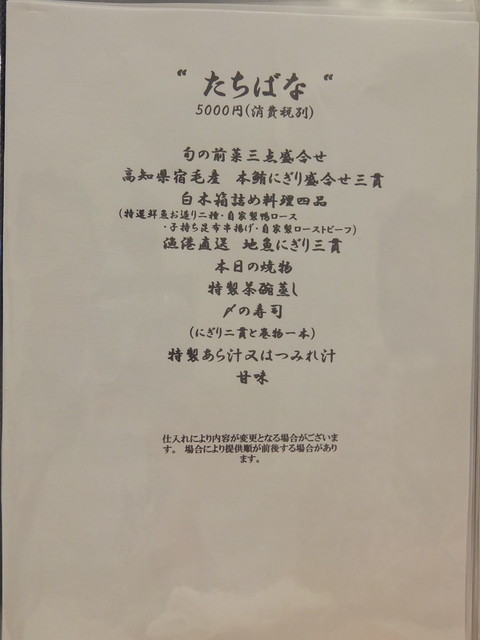 “ たちばな “
5000円(消費税別)
旬の前菜三点盛合せ
高知県宿毛産 本鮪にぎり盛合せ三貫
白木箱詰め料理四品
(特選鮮魚お造り二種・自家製鴨ロース
・子持ち昆布串揚げ・自家製ローストビーフ)
漁港直送 地魚にぎり三貫
本日の焼物
特製茶碗蒸し
〆の寿司
(にぎり二貫と巻物一本)
特製あら汁又はつみれ汁
甘味
仕入れにより内容が変更となる場合がございま
す。 場合により提供順が前後する場合があり
ます。